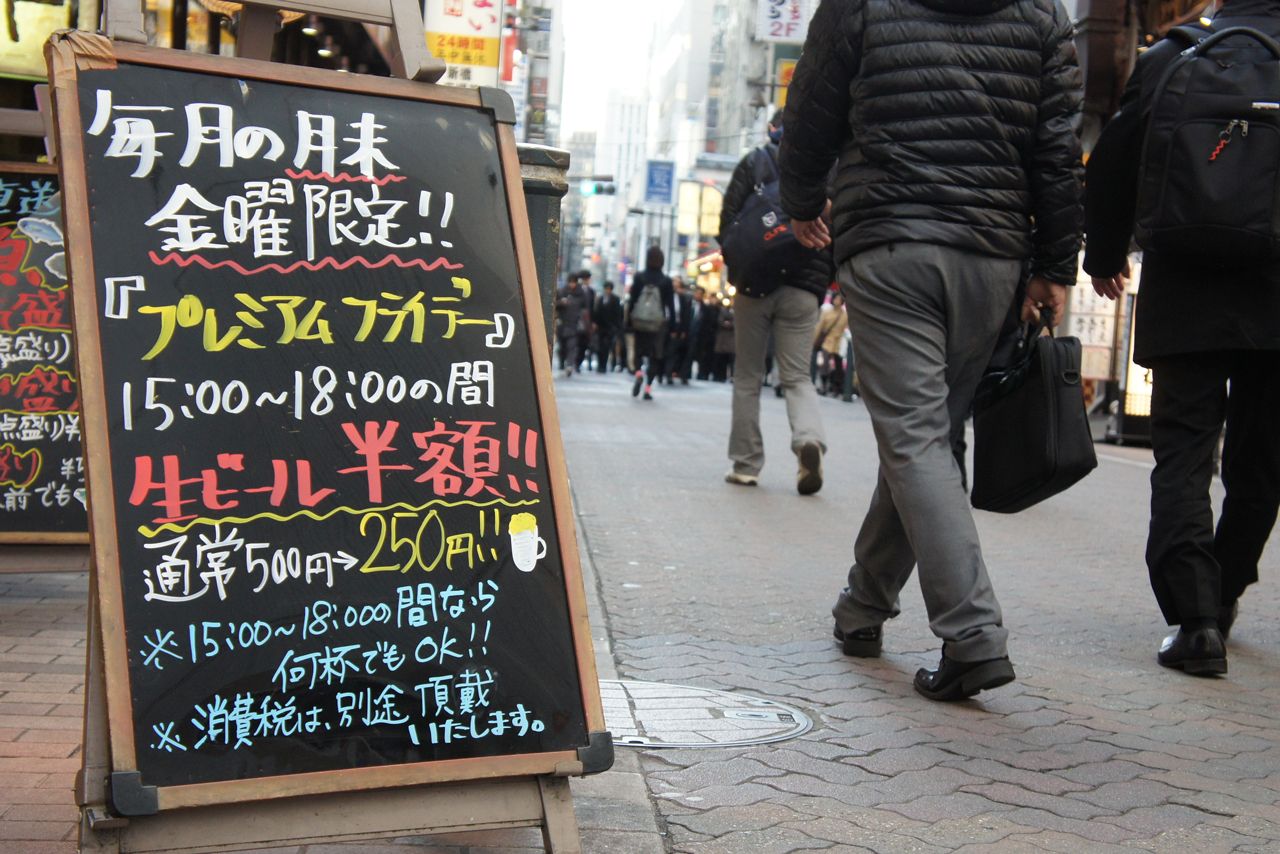 毎月の月末
金曜限定!!
『プレミアムフライデー』
15:00～18:00の間
生ビール半額!!
通常500円→250円!!
※15:00～18:00の間なら
何杯でもOK!!
※消費税は、別途頂戴
いたします。
直送
盛
点盛り)
盛
点盛り¥
盛り)
前でも
ない
24時間
新橋
2F